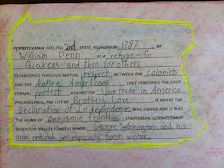 PENNSYLVANIA WAS THE 2nd STATE, FOUNDED IN 1787 BY
William Penn as a refuge for
Quakers and then for others.
ESTABLISHED THROUGH MUTUAL respect BETWEEN THE colonists
AND THE Native Americans THEY PUBLISHED THE FIRST
formal protest AGAINST THE Slave trade in America
PHILADELPHIA, THE CITY OF Brotherly Love IS WHERE THE
Declaration of Independence WAS SIGNED AND IT WAS
THE HOME OF Benjamin Franklin STATESMAN, SCIENTIST AND
INVENTOR. VALLEY FORGE IS WHERE George Washington and his
men endured an especially harsh winter.